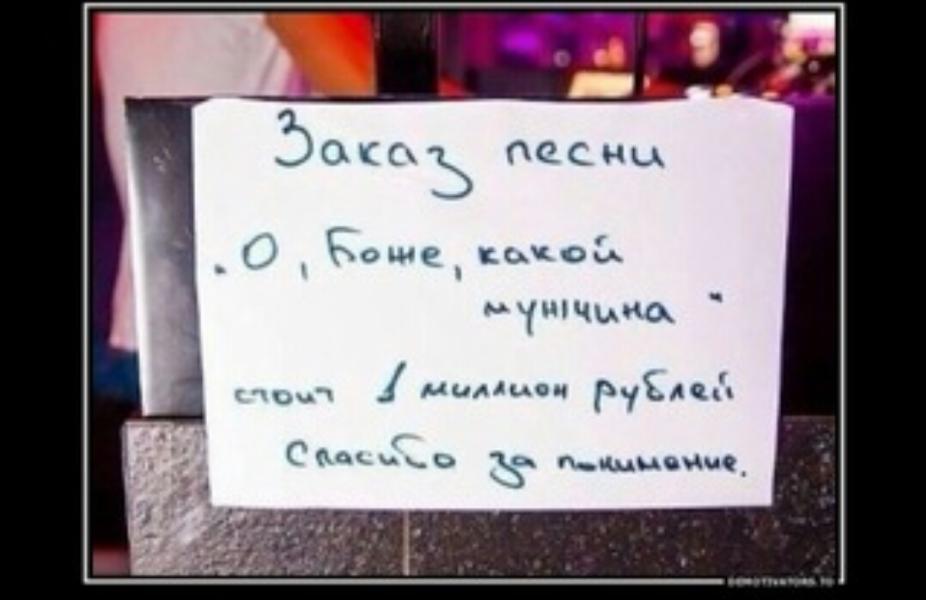 Заказ песни
"О, Боже, какой
мужчина"
стоит 1 миллион рублей
Спасибо за понимание.
DEMOTIVATORS.TO